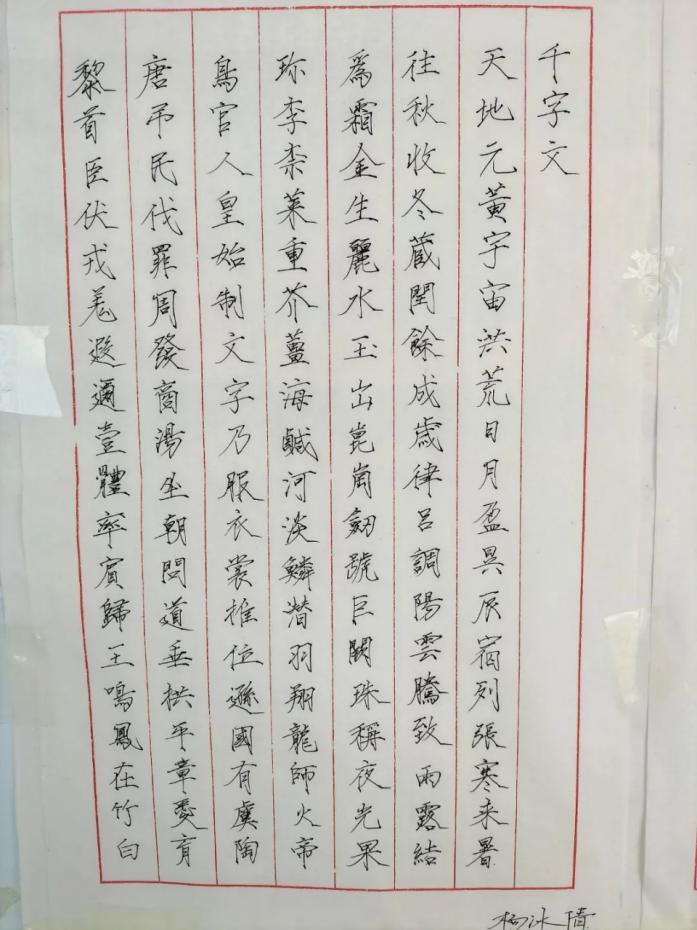 千字文
天地元黃宇宙洪荒日月盈昃辰宿列張寒来暑
往秋收冬蔵閏餘成歲律呂調陽雲騰致雨露結
為霜金生麗水玉出崑崗劔號巨闕珠稱夜光果
珎李柰菜重芥薑海鹹河淡鱗潛羽翔龍師火帝
鳥官人皇始制文字乃服衣裳推位遜國有虞陶
唐弔民伐罪周發商湯坐朝問道垂拱平章愛育
黎首臣伏戎羗遐邇壹體率賓歸王鳴鳳在竹白